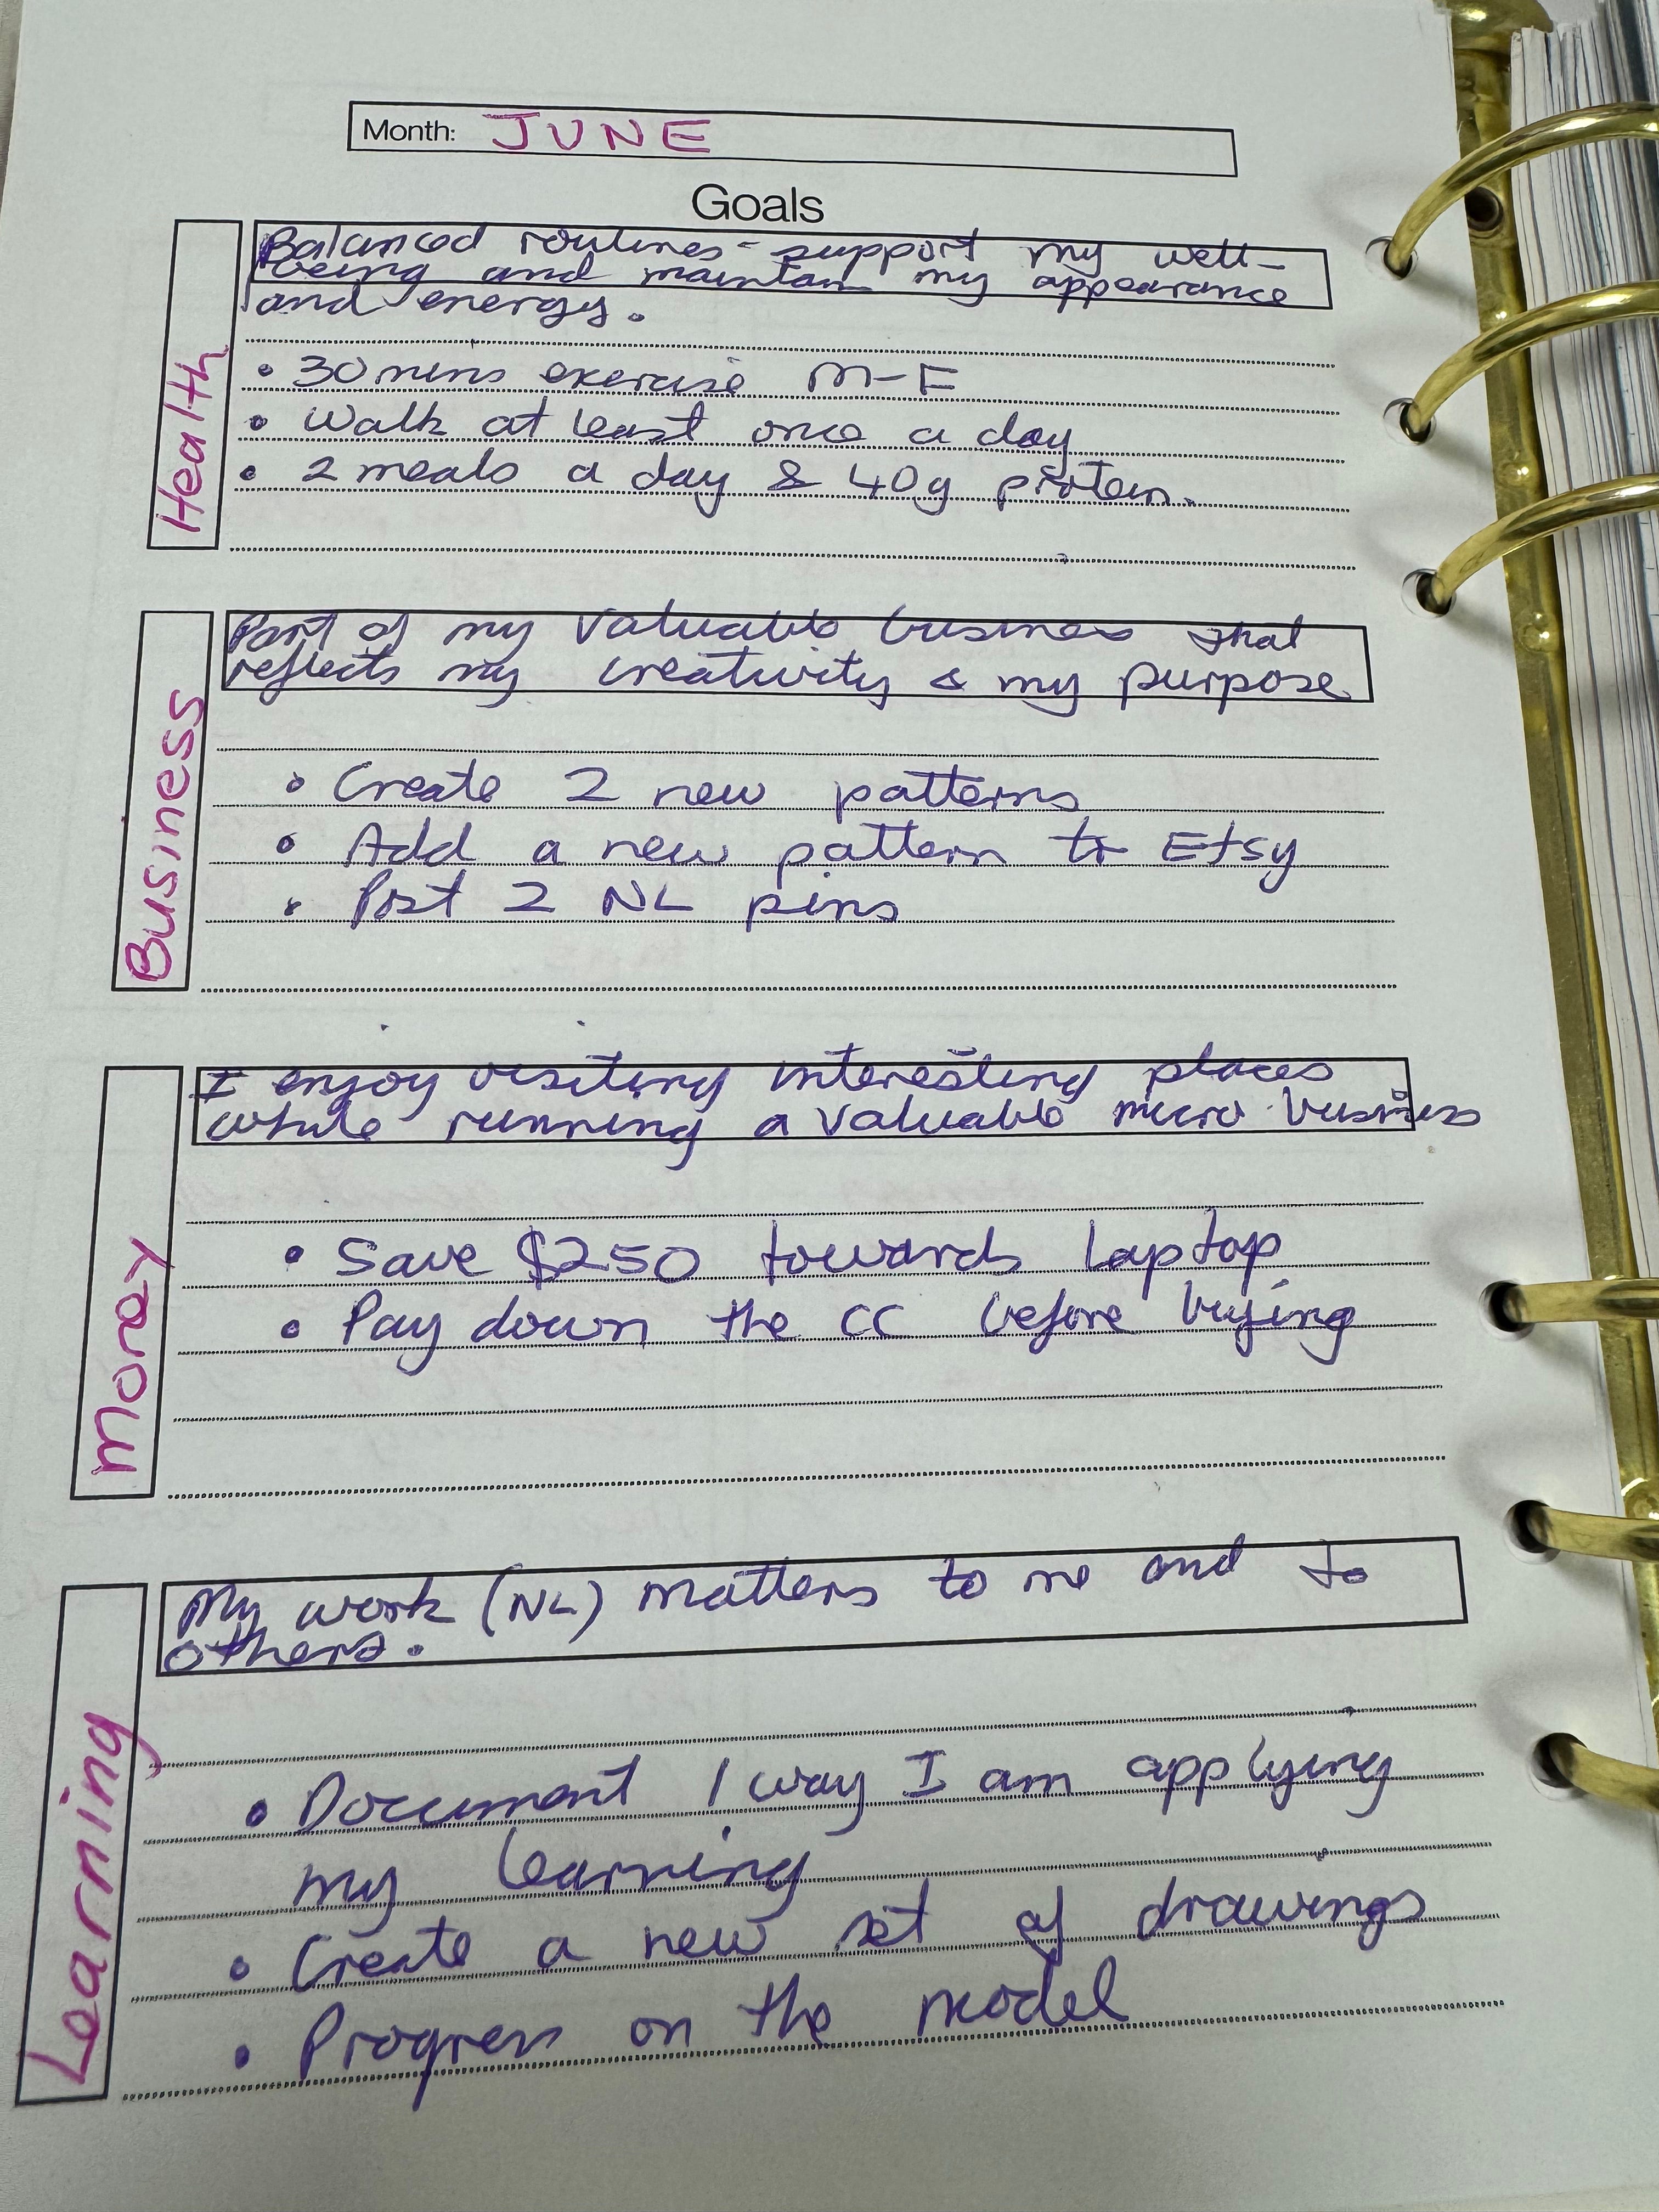 Month: JUNE
Goals
Health
Balanced routines - support my well-
being and maintain my appearance
and energy.
• 30 mins exercise M-F
• Walk at least once a day
• 2 meals a day & 40g protein.
Business
Part of my valuable business that
reflects my creativity & my purpose
• Create 2 new patterns
• Add a new pattern to Etsy
• Post 2 NL pins
Money
I enjoy visiting interesting places
while running a valuable micro business
• Save $250 towards laptop
• Pay down the CC before buying
Learning
My work (NL) matters to me and to
others.
• Document 1 way I am applying
my learning
• Create a new set of drawings
• Progress on the model